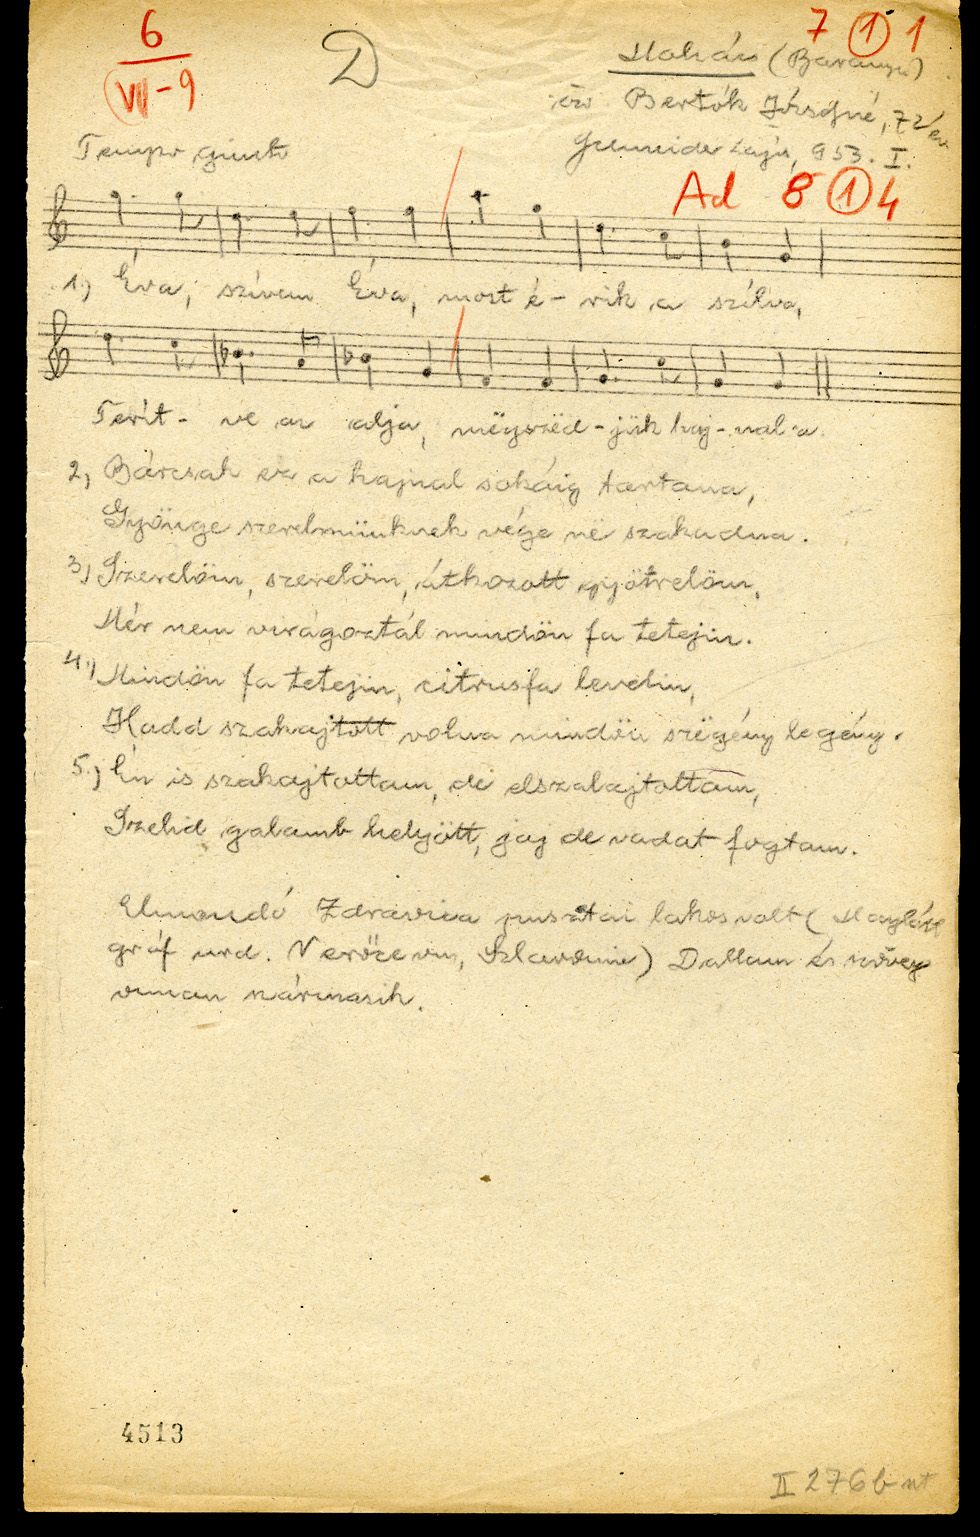 6
VII-9
D
7 1 1
Mohács (Baranya)
Bertók Józsefné, 72 év
Lajos, 953. I.
Tempo giusto
Ad 8 1 4
1.) Éva, szívem Éva, most é- rik a szilva,
Terít- ve az alja, mëgszëd-jük haj-nal-a
2, Bárcsak ez a hajnal sokáig tartana,
Gyönge szerelmünknek vége në szakadna.
3, Szerelöm, szerelöm, átkozott gyötrelöm,
Mér nem virágoztál mindön fa tetejin.
4.) Mindön fa tetejin, citrusfa levelin,
Hadd szakajtott volna mindön szëgény legény.
5.) Én is szakajtottam, de elszalajtottam,
Szelid galamb helyött, jaj de vadat fogtam.
Elmondó Zdravica pusztai lakos volt (
gróf urd. Verőce vm, Szlavónia) Dallam és szöveg
onnan származik.
4513
II 276 b nt